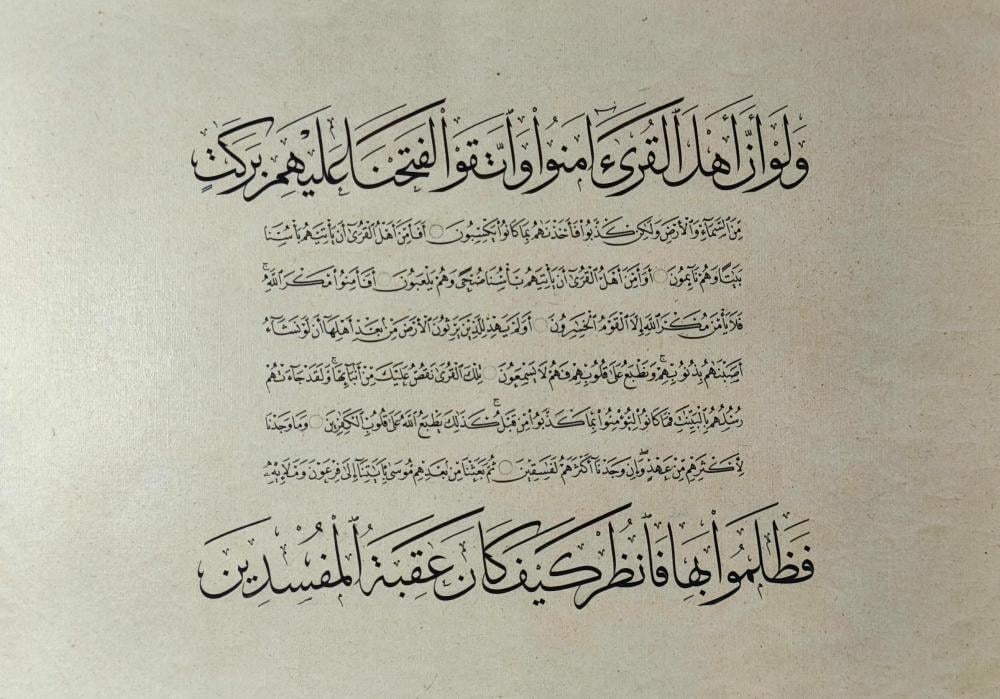 وَلَوْ أَنَّ أَهْلَ الْقُرَىٰٓ ءَامَنُوا وَاتَّقَوْا لَفَتَحْنَا عَلَيْهِم بَرَكَٰتٍ
مِّنَ السَّمَآءِ وَالْأَرْضِ وَلَٰكِن كَذَّبُوا فَأَخَذْنَٰهُم بِمَا كَانُوا يَكْسِبُونَ ۝ أَفَأَمِنَ أَهْلُ الْقُرَىٰٓ أَن يَأْتِيَهُم بَأْسُنَا
بَيَٰتًا وَهُمْ نَآئِمُونَ ۝ أَوَأَمِنَ أَهْلُ الْقُرَىٰٓ أَن يَأْتِيَهُم بَأْسُنَا ضُحًى وَهُمْ يَلْعَبُونَ ۝ أَفَأَمِنُوا مَكْرَ اللَّهِ ۚ
فَلَا يَأْمَنُ مَكْرَ اللَّهِ إِلَّا الْقَوْمُ الْخَٰسِرُونَ ۝ أَوَلَمْ يَهْدِ لِلَّذِينَ يَرِثُونَ الْأَرْضَ مِن بَعْدِ أَهْلِهَآ أَن لَّوْ نَشَآءُ
أَصَبْنَٰهُم بِذُنُوبِهِمْ ۚ وَنَطْبَعُ عَلَىٰ قُلُوبِهِمْ فَهُمْ لَا يَسْمَعُونَ ۝ تِلْكَ الْقُرَىٰ نَقُصُّ عَلَيْكَ مِنْ أَنۢبَآئِهَا ۚ وَلَقَدْ جَآءَتْهُمْ
رُسُلُهُم بِالْبَيِّنَٰتِ فَمَا كَانُوا لِيُؤْمِنُوا بِمَا كَذَّبُوا مِن قَبْلُ ۚ كَذَٰلِكَ يَطْبَعُ اللَّهُ عَلَىٰ قُلُوبِ الْكَٰفِرِينَ ۝ وَمَا وَجَدْنَا
لِأَكْثَرِهِم مِّنْ عَهْدٍ ۖ وَإِن وَجَدْنَآ أَكْثَرَهُمْ لَفَٰسِقِينَ ۝ ثُمَّ بَعَثْنَا مِنۢ بَعْدِهِم مُّوسَىٰ بِـَٔايَٰتِنَآ إِلَىٰ فِرْعَوْنَ وَمَلَإِيْهِ
فَظَلَمُوا بِهَا ۖ فَانظُرْ كَيْفَ كَانَ عَٰقِبَةُ الْمُفْسِدِينَ